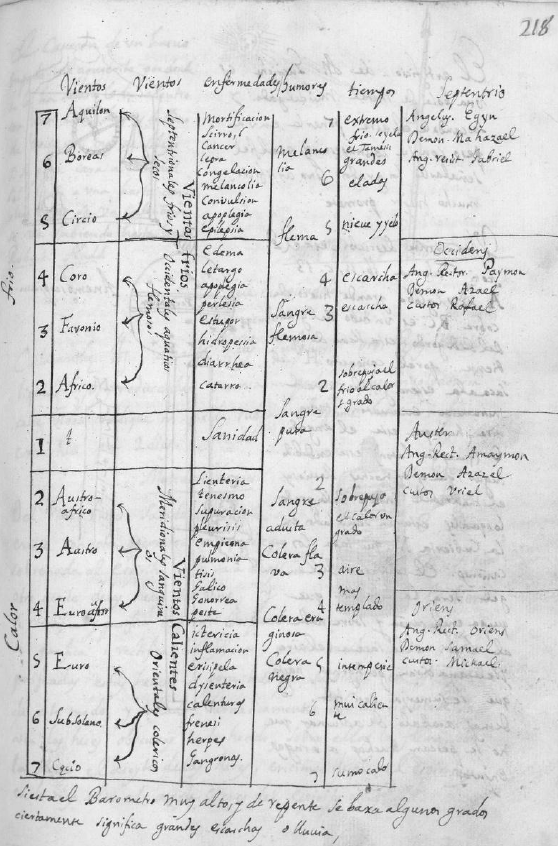 218
Vientos Vientos enfermedades humores tiempos Septentrio
7 Aquilon
6 Boreas
5 Circio
4 Coro
3 Favonio
2 Africo.
1
2 Austro-
africo
3 Austro
4 Euroaustro
5 Euro
6 Subsolano
7 Cecio
frio
Calor
Septentrionales frios y
secos
Occidentales aquatico
flemosi
Meridionales sanguine
os
Orientales colericos
Vientos frios
Vientos Calientes
Mortificacion
Scirros
Cancer
lepra
congelacion
melancolia
Convulsion
apoplegia
epilepsia
Edema
letargo
apoplegia
perlesia
estupor
hidropessia
diarrhea
catarro
Sanidad
Lienteria
tenesmo
supuracion
pleurisis
empiema
pulmonia
tisis
Galico
Gonorrea
peste
ictericia
inflamacion
erisipela
dysenteria
calenturas
frenesi
herpes
Gangrenas.
Melanco
lia
flema
Sangre
flemosa
Sangre
pura
Sangre
adusta
Colera fla
va
Colera eru
ginosa
Colera
negra
7 extremo
frio
grandes
6 elados
5 nieve y yelo
4 escarcha
3 escarcha
2 sobrepuja el
frio al calor
1 grado
2 sobrepujo
el calor un
grado
3 aire
muy
4 templado
5 intemperie
6 mui calien
te
7 sumo calo
Angelus. Egyn
Demon. Mahazael
Ang. rect. Gabriel
Occidens
Ang. Rector. Paymon
Demon Azael
custos Rafael
Auster
Ang. Rect. Amaymon
Demon Azazel
custos Vriel
Oriens
Ang. Rect. Oriens
Demon Samael
custos. Michael.
Si esta el Barometro muy alto, y de repente se baxa algunos grados
ciertamente significa grandes escarchas o lluvia,